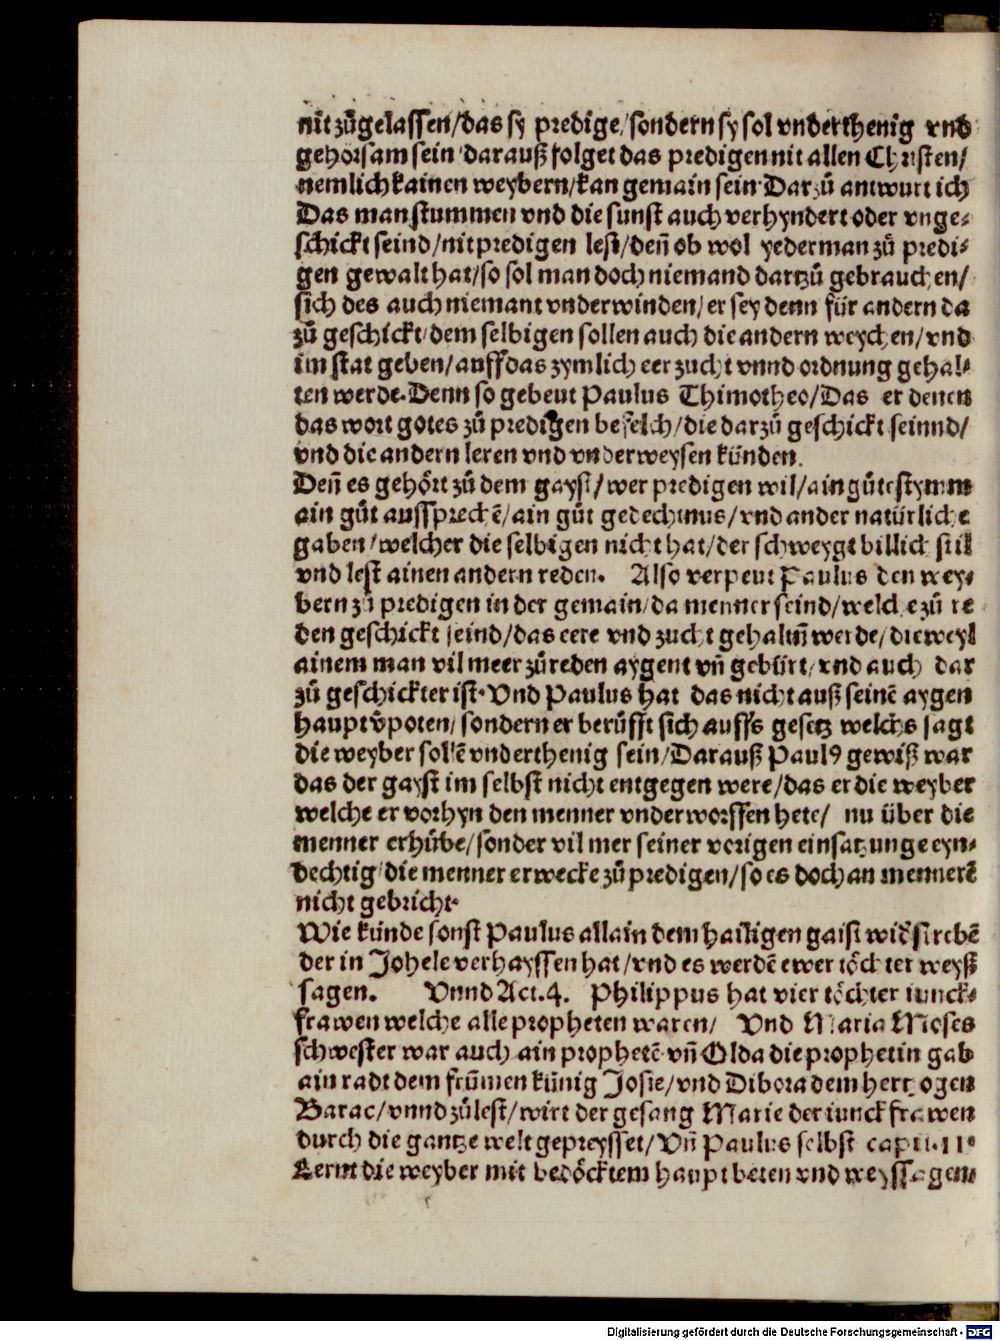 nit zůgelassen/das sy predige/sondern sy sol vnderthenig vnd
gehorsam sein/darauß folget das predigen nit allen Christen/
nemlich kainen weybern/kan gemain sein Darzů antwurt ich
Das man stummen vnd die sunst auch verhyndert oder vnge⸗
schickt seind/nit predigen lest/deñ ob wol yederman zů predi⸗
gen gewalt hat/so sol man doch niemand dartzů gebrauchen/
sich des auch niemant vnderwinden/er sey denn für andern da
zů geschickt/dem selbigen sollen auch die andern weychen/vnd
im stat geben/auff das zymlich eer zucht vnnd ordnung gehal⸗
ten werde. Denn so gebeut Paulus Thimotheo/Das er denen
das wort gotes zů predigen befelch/die darzů geschickt seinnd/
vnd die andern leren vnd vnderweysen künden.
Deñ es gehört zů dem gayst/wer predigen wil/ain gůte stymm
ain gůt aussprechẽ/ain gůt gedechtnus/vnd ander natürliche
gaben/welcher die selbigen nicht hat/der schweygt billich stil
vnd lest ainen andern reden. Also verpeut Paulus den wey⸗
bern zů predigen in der gemain/da menner seind/welche zů re
den geschickt seind/das eere vnd zucht gehaltñ werde/dieweyl
ainem man vil meer zůreden aygent vñ gebürt/vnd auch dar
zů geschickter ist. Vnd Paulus hat das nicht auß seinẽ aygen
haupt v̂poten/sondern er berůfft sich auffs gesetz welchs sagt
die weyber sollẽ vnderthenig sein/Darauß Paulꝰ gewiß war
das der gayst im selbst nicht entgegen were/das er die weyber
welche er vorhyn den menner vnderworffen hete/ nu über die
menner erhůbe/sonder vil mer seiner vorigen einsatzunge eyn⸗
dechtig/die menner erwecke zů predigen/so es doch an mennerẽ
nicht gebricht.
Wie künde sonst Paulus allain dem hailigen gaist wid̓strebẽ
der in Johele verhayssen hat/vnd es werdẽ ewer töchter weyß
sagen. Vnnd Act.4. Philippus hat vier töchter iunck⸗
frawen welche alle propheten waren/ Vnd Maria Moses
schwester war auch ain prophetẽ vñ Olda die prophetin gab
ain radt dem frũmen künig Josie/vnd Dibora dem hertzogen
Barac/vnnd zůlest/wirt der gesang Marie der iunckfrawen
durch die gantze welt gepreysset/Vñ Paulus selbst capit.11.
Lernt die weyber mit bedöcktem haupt beten vnd weyssagen.
Digitalisierung gefördert durch die Deutsche Forschungsgemeinschaft - DFG